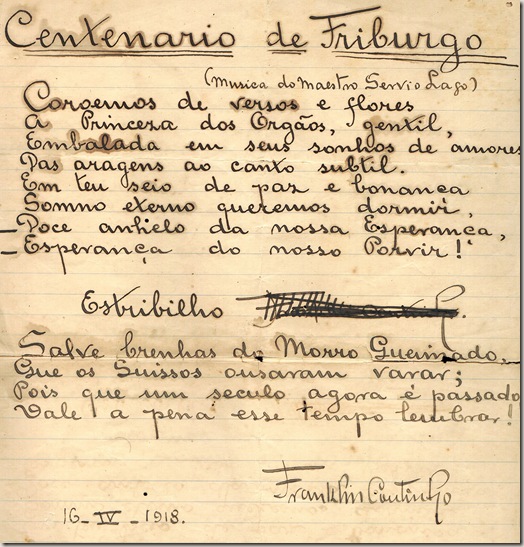 Centenario de Friburgo
(Musica do Maestro Servio Lago)
Coroemos de versos e flores
A Princeza dos Orgãos, gentil,
Embalada em seus sonhos de amores
Das aragens ao canto subtil.
Em teu seio de paz e bonança
Somno eterno queremos dormir,
– Doce anhelo da nossa Esperança,
– Esperança do nosso Porvir!
Estribilho
Salve brenhas do Morro Queimado,
Que os Suissos ousaram varar;
Pois que um seculo agora é passado
Vale a pena esse tempo lembrar!
Franklin Coutinho
16_IV_1918.